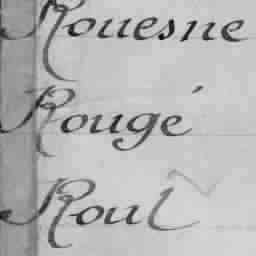 Rouesne
Rougé
Roul